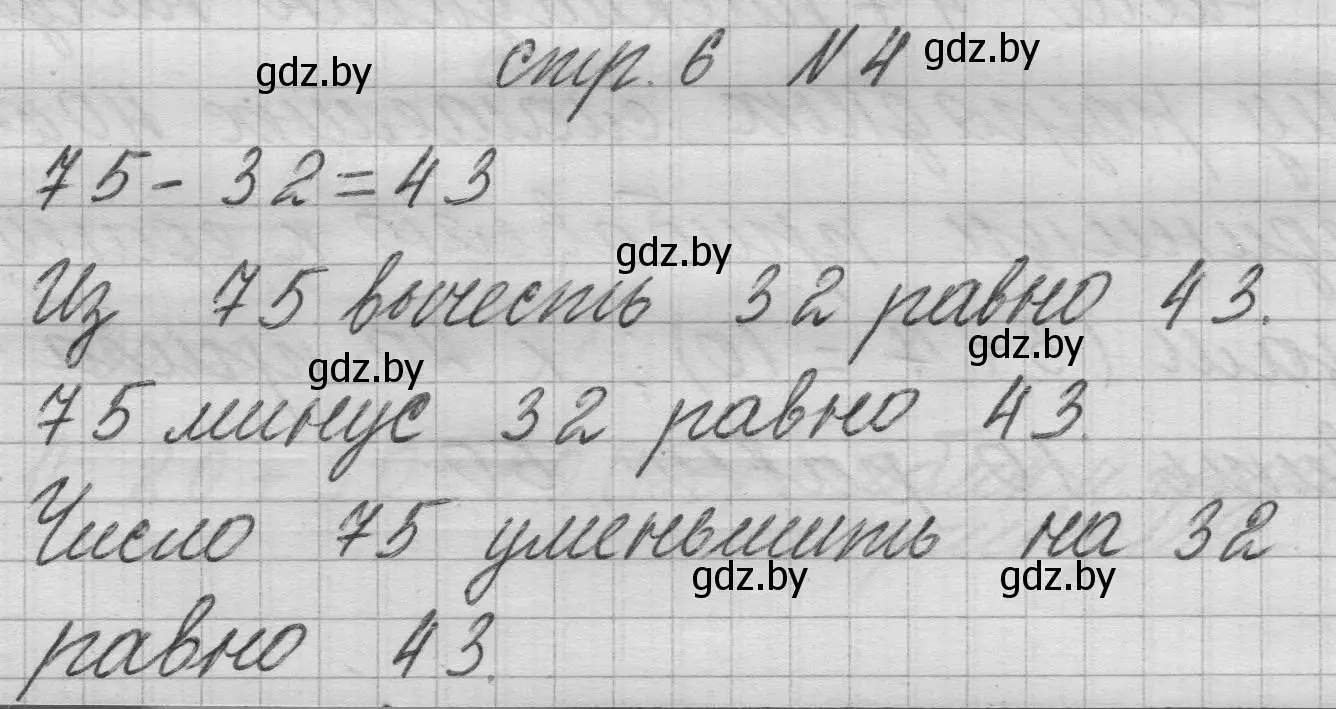 gdz.by стр. 6 N 4 gdz.by
75 - 32 = 43
gdz.by
Из 75 вычесть 32 равно 43.
gdz.by gdz.by
75 минус 32 равно 43.
Число 75 уменьшить на 32
gdz.by gdz.by
равно 43.